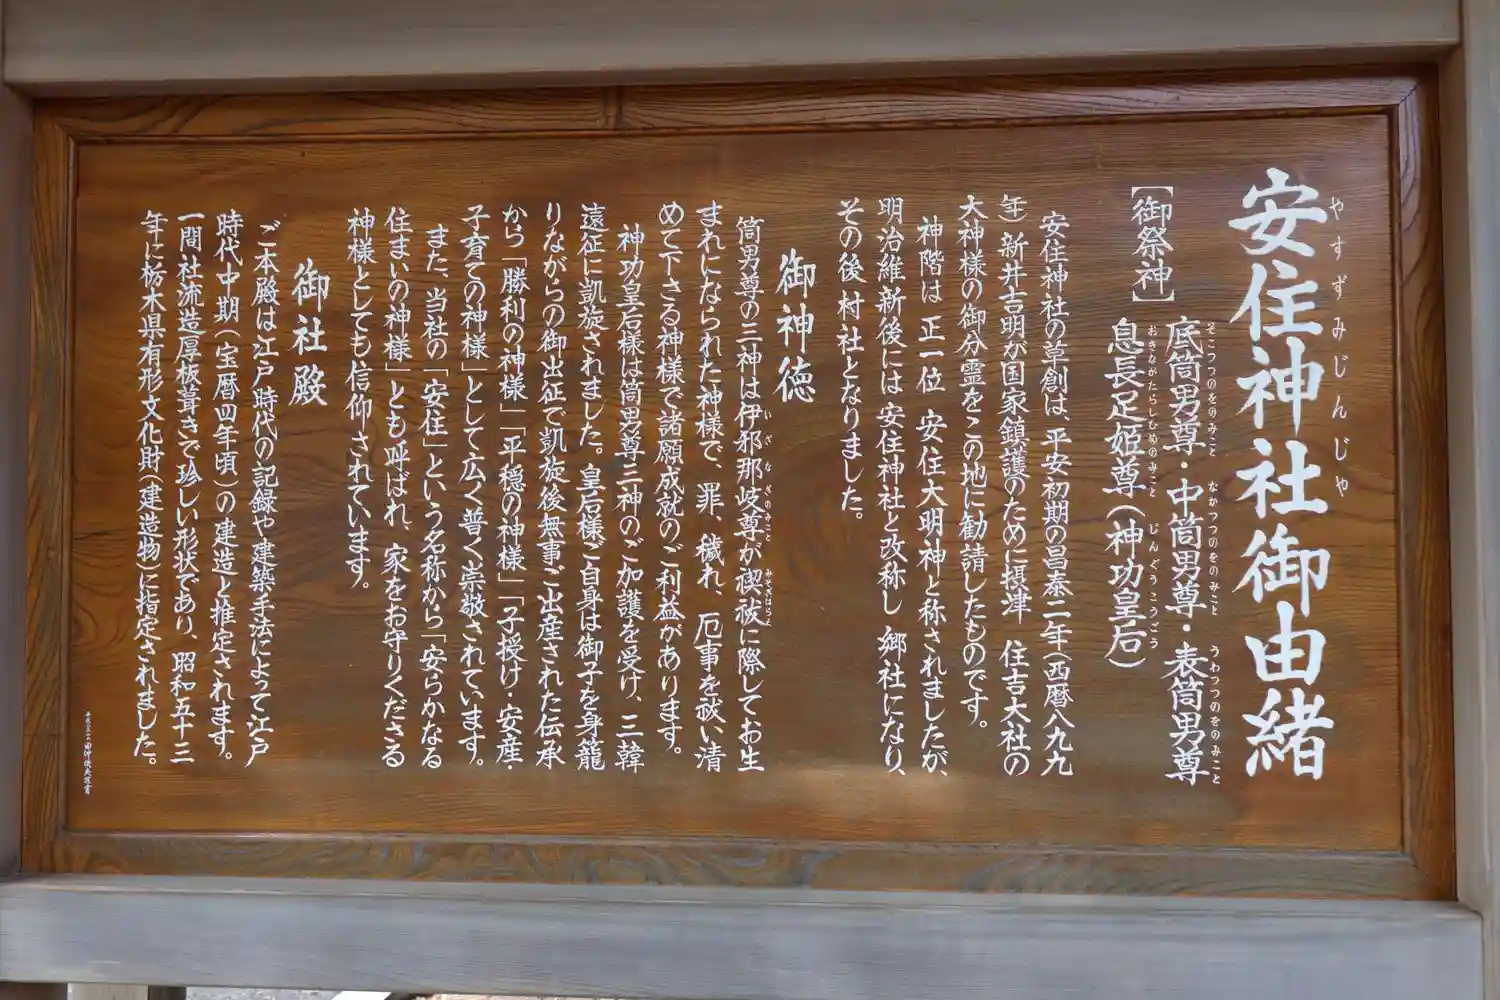 安住神社御由緒
やすずみじんじゃ
【御祭神】
底筒男尊・中筒男尊・表筒男尊
そこつつのをのみこと なかつつのをのみこと うわつつのをのみこと
息長足姫尊(神功皇后)
おきながたらしひめのみこと じんぐうこうごう
安住神社の草創は、平安初期の昌泰二年(西暦八九九
年)新井吉明が国家鎮護のために摂津 住吉大社の
大神様の御分霊をこの地に勧請したものです。
神階は 正一位 安住大明神と称されましたが、
明治維新後には 安住神社と改称し 郷社になり、
その後村社となりました。
御神徳
筒男尊の三神は伊邪那岐尊が禊祓に際してお生
いざなぎのみこと みそぎはらえ
まれになられた神様で、罪、穢れ、厄事を祓い清
めて下さる神様で諸願成就のご利益があります。
神功皇后様は筒男尊三神のご加護を受け、三韓
遠征に凱旋されました。皇后様ご自身は御子を身籠
りながらの御出征で凱旋後無事ご出産された伝承
から「勝利の神様」「平穏の神様」「子授け・安産・
子育ての神様」として広く普く崇敬されています。
また、当社の「安住」という名称から「安らかなる
住まいの神様」とも呼ばれ、家をお守りくださる
神様としても信仰されています。
御社殿
ご本殿は江戸時代の記録や建築手法によって江戸
時代中期(宝暦四年頃)の建造と推定されます。
一間社流造厚板葺きで珍しい形状であり、昭和五十三
年に栃木県有形文化財(建造物)に指定されました。